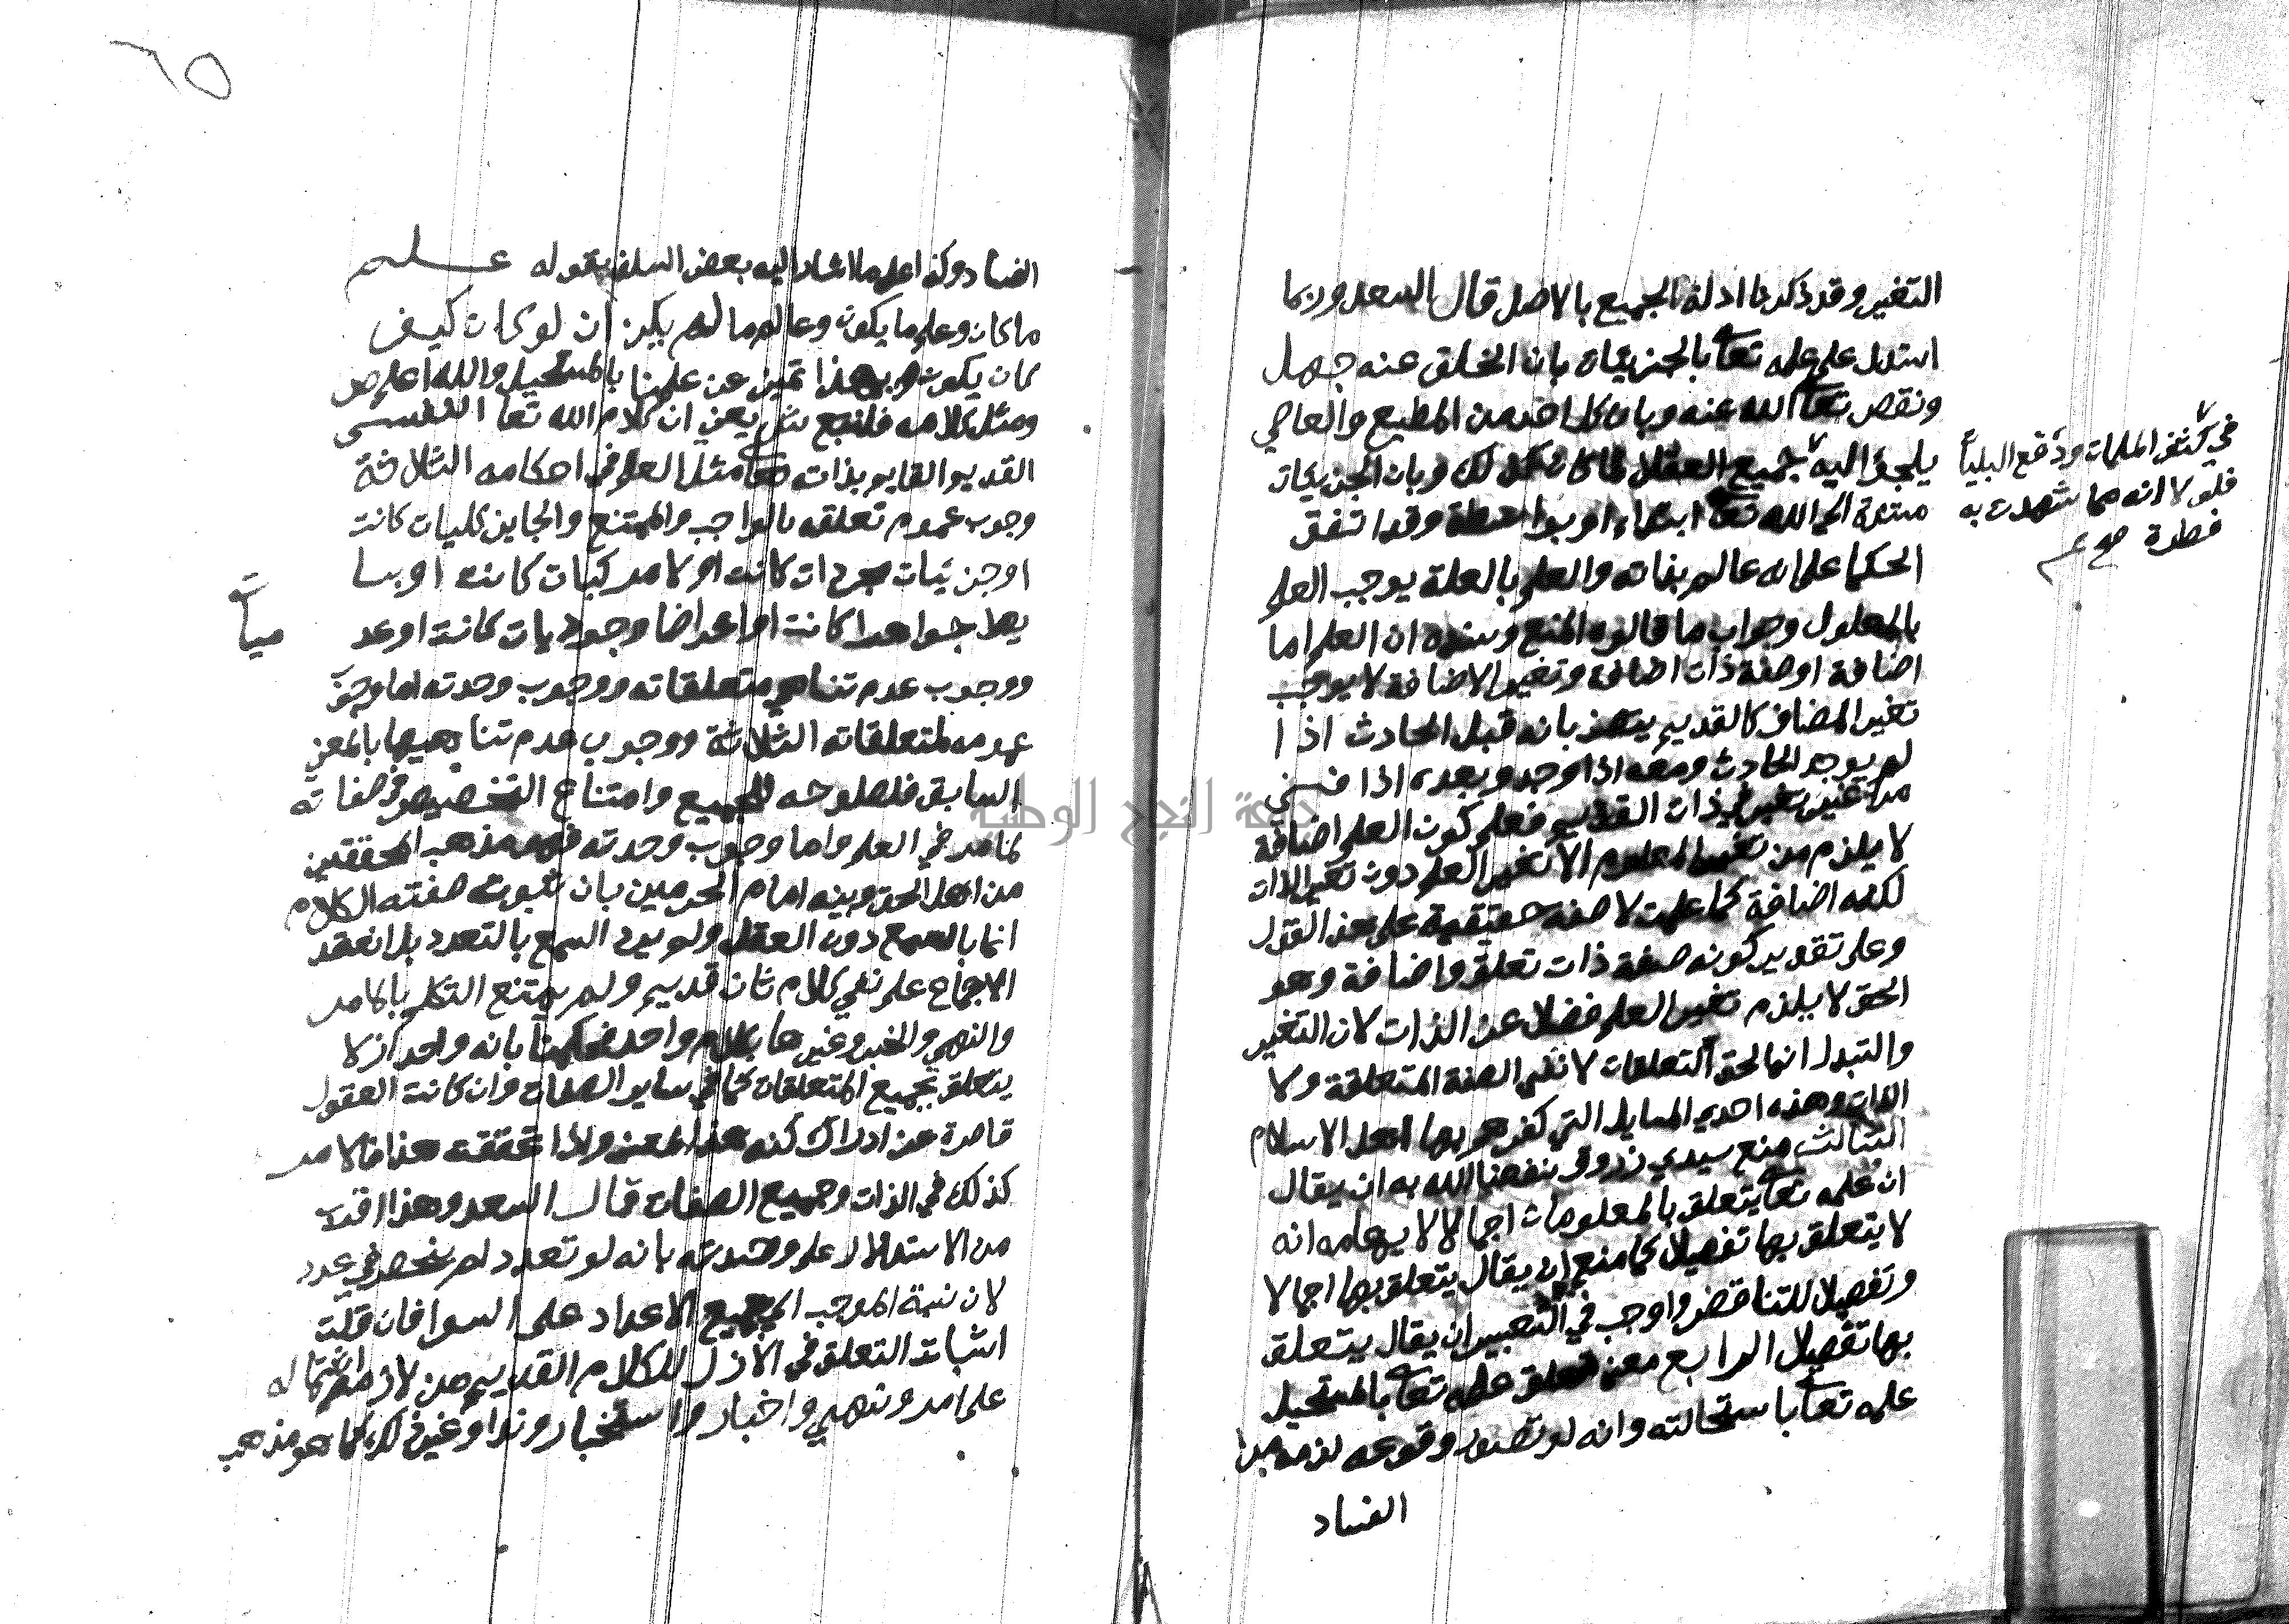 التغير وقد ذكرنا ادلة الجميع بالاصل قال السعد وربما
استدل على علمه تعا بالجزئيات بان الخلق عنه جهل
ونقص تعا الله عنه وبان كل احد من المطيع والعاصي
يلجؤ اليه جميع العقلا وبان الجزئيات
في كشف الملمات ودفع البليات
فلولا انه مما شهدت به
فطرة صح
مستندة الى الله تعا ابتداء او بواسطة وقد اتفق
الحكما على انه عالم بذاته والعلم بالعلة يوجب العلم
بالمعلول وجواب ما قالوه المنع وسنده ان العلم اما
اضافة او صفة ذات اضافة وتغير الاضافة لا يوجب
تغير المضاف كالقديم يتصف بانه قبل الحادث اذا
لم يوجد الحادث ومعه اذا وجد وبعده اذا فني
من غير تغير في ذات القديم فعلى كون العلم اضافة
لا يلزم من تغير المعلوم الا تغير العلم دون تغير الذات
لكنه اضافة كما علمت لا صفة حقيقية على هذا القول
وعلى تقدير كونه صفة ذات تعلق واضافة وهو
الحق لا يلزم تغير العلم فضلا عن الذات لان التغير
والتبدل انما لحق التعلقات لا نفس الصفة المتعلقة ولا
الذات وهذه احدى المسايل التي كفرهم بها اهل الاسلام
الثالث منع سيدي زروق نفعنا الله به ان يقال
ان علمه تعا يتعلق بالمعلومات اجمالا لايهامه انه
لا يتعلق بها تفصيلا كما منع ان يقال يتعلق بها اجمالا
وتفصيلا للتناقض واوجب في التعبير ان يقال يتعلق
بها تفصيلا الرابع معنى تعلق علمه تعا بالمستحيل
علمه تعا باستحالته وانه لو تصور وقوعه لزمه من
الفساد
٦٥
الفساد وكذا على ما اشار اليه بعض السلف بقوله علم
ما كان وعلم ما يكون وعالم ما لم يكن ان لو كان كيف
كان يكون وبهذا تميز عن علمنا بالمستحيل والله اعلم ص
ومثل كلامه فلنتبع ش يعني ان كلام الله تعا النفسي
القديم القايم بذاته تعا مثل العلم في احكامه الثلاثة
وجوب عموم تعلقه بالواجب والممتنع والجايز كليات كانت
او جزئيات مجردات كانت او لا مركبات كانت او بسا
يط جواهرا كانت او اعراضا وجوديات كانت او عد
ميات
ووجوب عدم تناهي متعلقاته ووجوب وحدته اما وجوب
عمومه لمتعلقاته الثلاثة ووجوب عدم تناهيها بالمعنى
السابق فلصلوحه للجميع وامتناع التخصيص في صفاته
كما مر في العلم واما وجوب وحدته فهو مذهب المحققين
من اهل الحق وبينه امام الحرمين بان ثبوت صفته الكلام
انما بالسمع دون العقل ولم يرد السمع بالتعدد بل انعقد
الاجماع على نفي كلام ثان قديم ولم يمتنع التكلم بالامر
والنهي والخبر وغيرها بكلام واحد فحكمنا بانه واحد ازلا
يتعلق بجميع المتعلقات كما في ساير الصفات وان كانت العقول
قاصرة عن ادراك كنه هذا المعنى واذا تحققت هذا فالامر
كذلك في الذات وجميع الصفات قال السعد وهذا اقرب
من الاستدلال على وحدته بانه لو تعدد لم ينحصر في عدد
لان نسبة الموجب الى جميع الاعداد على السوا فان قلت
اثبات التعلق في الازل للكلام القديم من لازمه اشتماله
على امر ونهي واخبار واستخبار وندا وغير ذلك كما هو مذهب